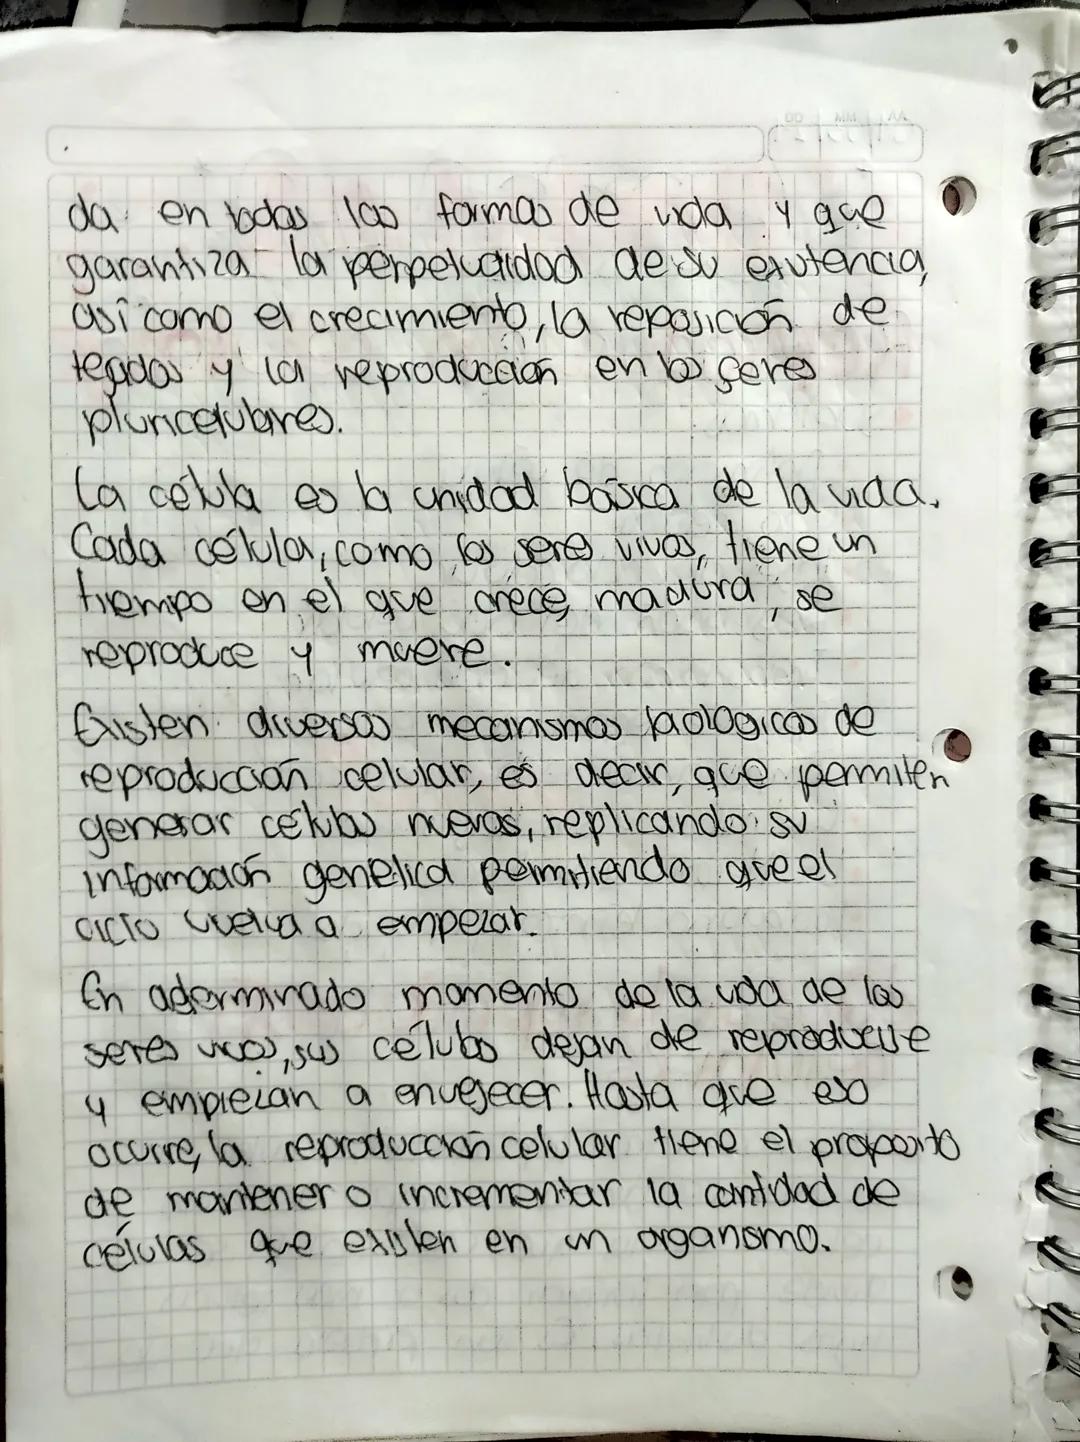 da en todas las formas de vida y que
garantiza la perpetuaidad de su existencia,
así como el crecimiento, la reposición de
tegidos y la reproducción en los seres
pluricelulares.
La célula es la unidad básica de la vida.
Cada célula, como los seres vivos, tiene un
tiempo en el que crece, madura, se
reproduce y muere.
Existen diversos mecanismos biologicos de
reproducción celular, es decir, que permiten
generar células nuevas, replicando su
información genetica permitiendo que el
ciclo vuelva a empezar.
En determinado momento de la vida de los
seres vivos, sus células dejan de reproducirse
y empiezan a envegecer. Hasta que eso
ocurre, la reproducción celular tiene el proposito
de mantener o incrementar la cantidad de
células que existen en un organismo.